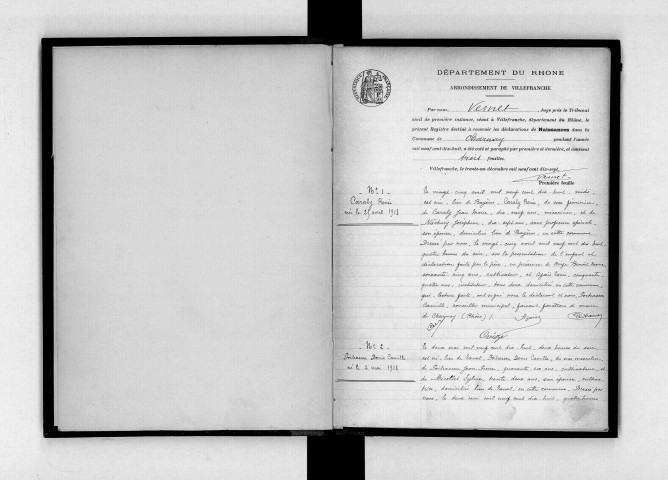 DÉPARTEMENT DU RHONE
ARRONDISSEMENT DE VILLEFRANCHE
Par nous, Vernet Juge près le Tribunal
civil de première instance, séant à Villefranche, département du Rhône, le
présent Registre destiné à recevoir les déclarations de Naissances dans la
Commune de Charnay pendant l'année
mil neuf cent dix-huit, a été coté et paraphé par première et dernière, et contient
trois feuilles.
Villefranche, le trente-un décembre mil neuf cent dix-sept.
Vernet
Première feuille
N° 1
né le 25 avril 1918
Le vingt cinq avril mil neuf cent dix huit, midi
est né, lieu de Bayère, René, du sexe
Jean Marie, dix neuf ans, et de
Joséphine, dix sept ans, sans profession
son épouse, domiciliés lieu de Bayère, en cette commune
Dressé par nous, le vingt cinq avril mil neuf cent dix huit,
quatre heures du soir, sur la présentation de l'enfant et
déclaration faite par le père, en présence de Benoît
soixante cinq ans, cultivateur, et cinquante
quatre ans, instituteur, tous deux domiciliés en cette commune,
qui, lecture faite, ont signé avec le déclarant et nous,
conseiller municipal, faisant fonctions de maire
de Charnay (Rhône) /.
N° 2
né le 2 mai 1918
Le deux mai mil neuf cent dix huit, deux heures du soir
est né, lieu de Camille, du sexe masculin
de Jean quarante six ans, cultivateur, et
de trente deux ans, son épouse,
domiciliés lieu de en cette commune. Dressé par
nous, le deux mai mil neuf cent dix huit, quatre heures